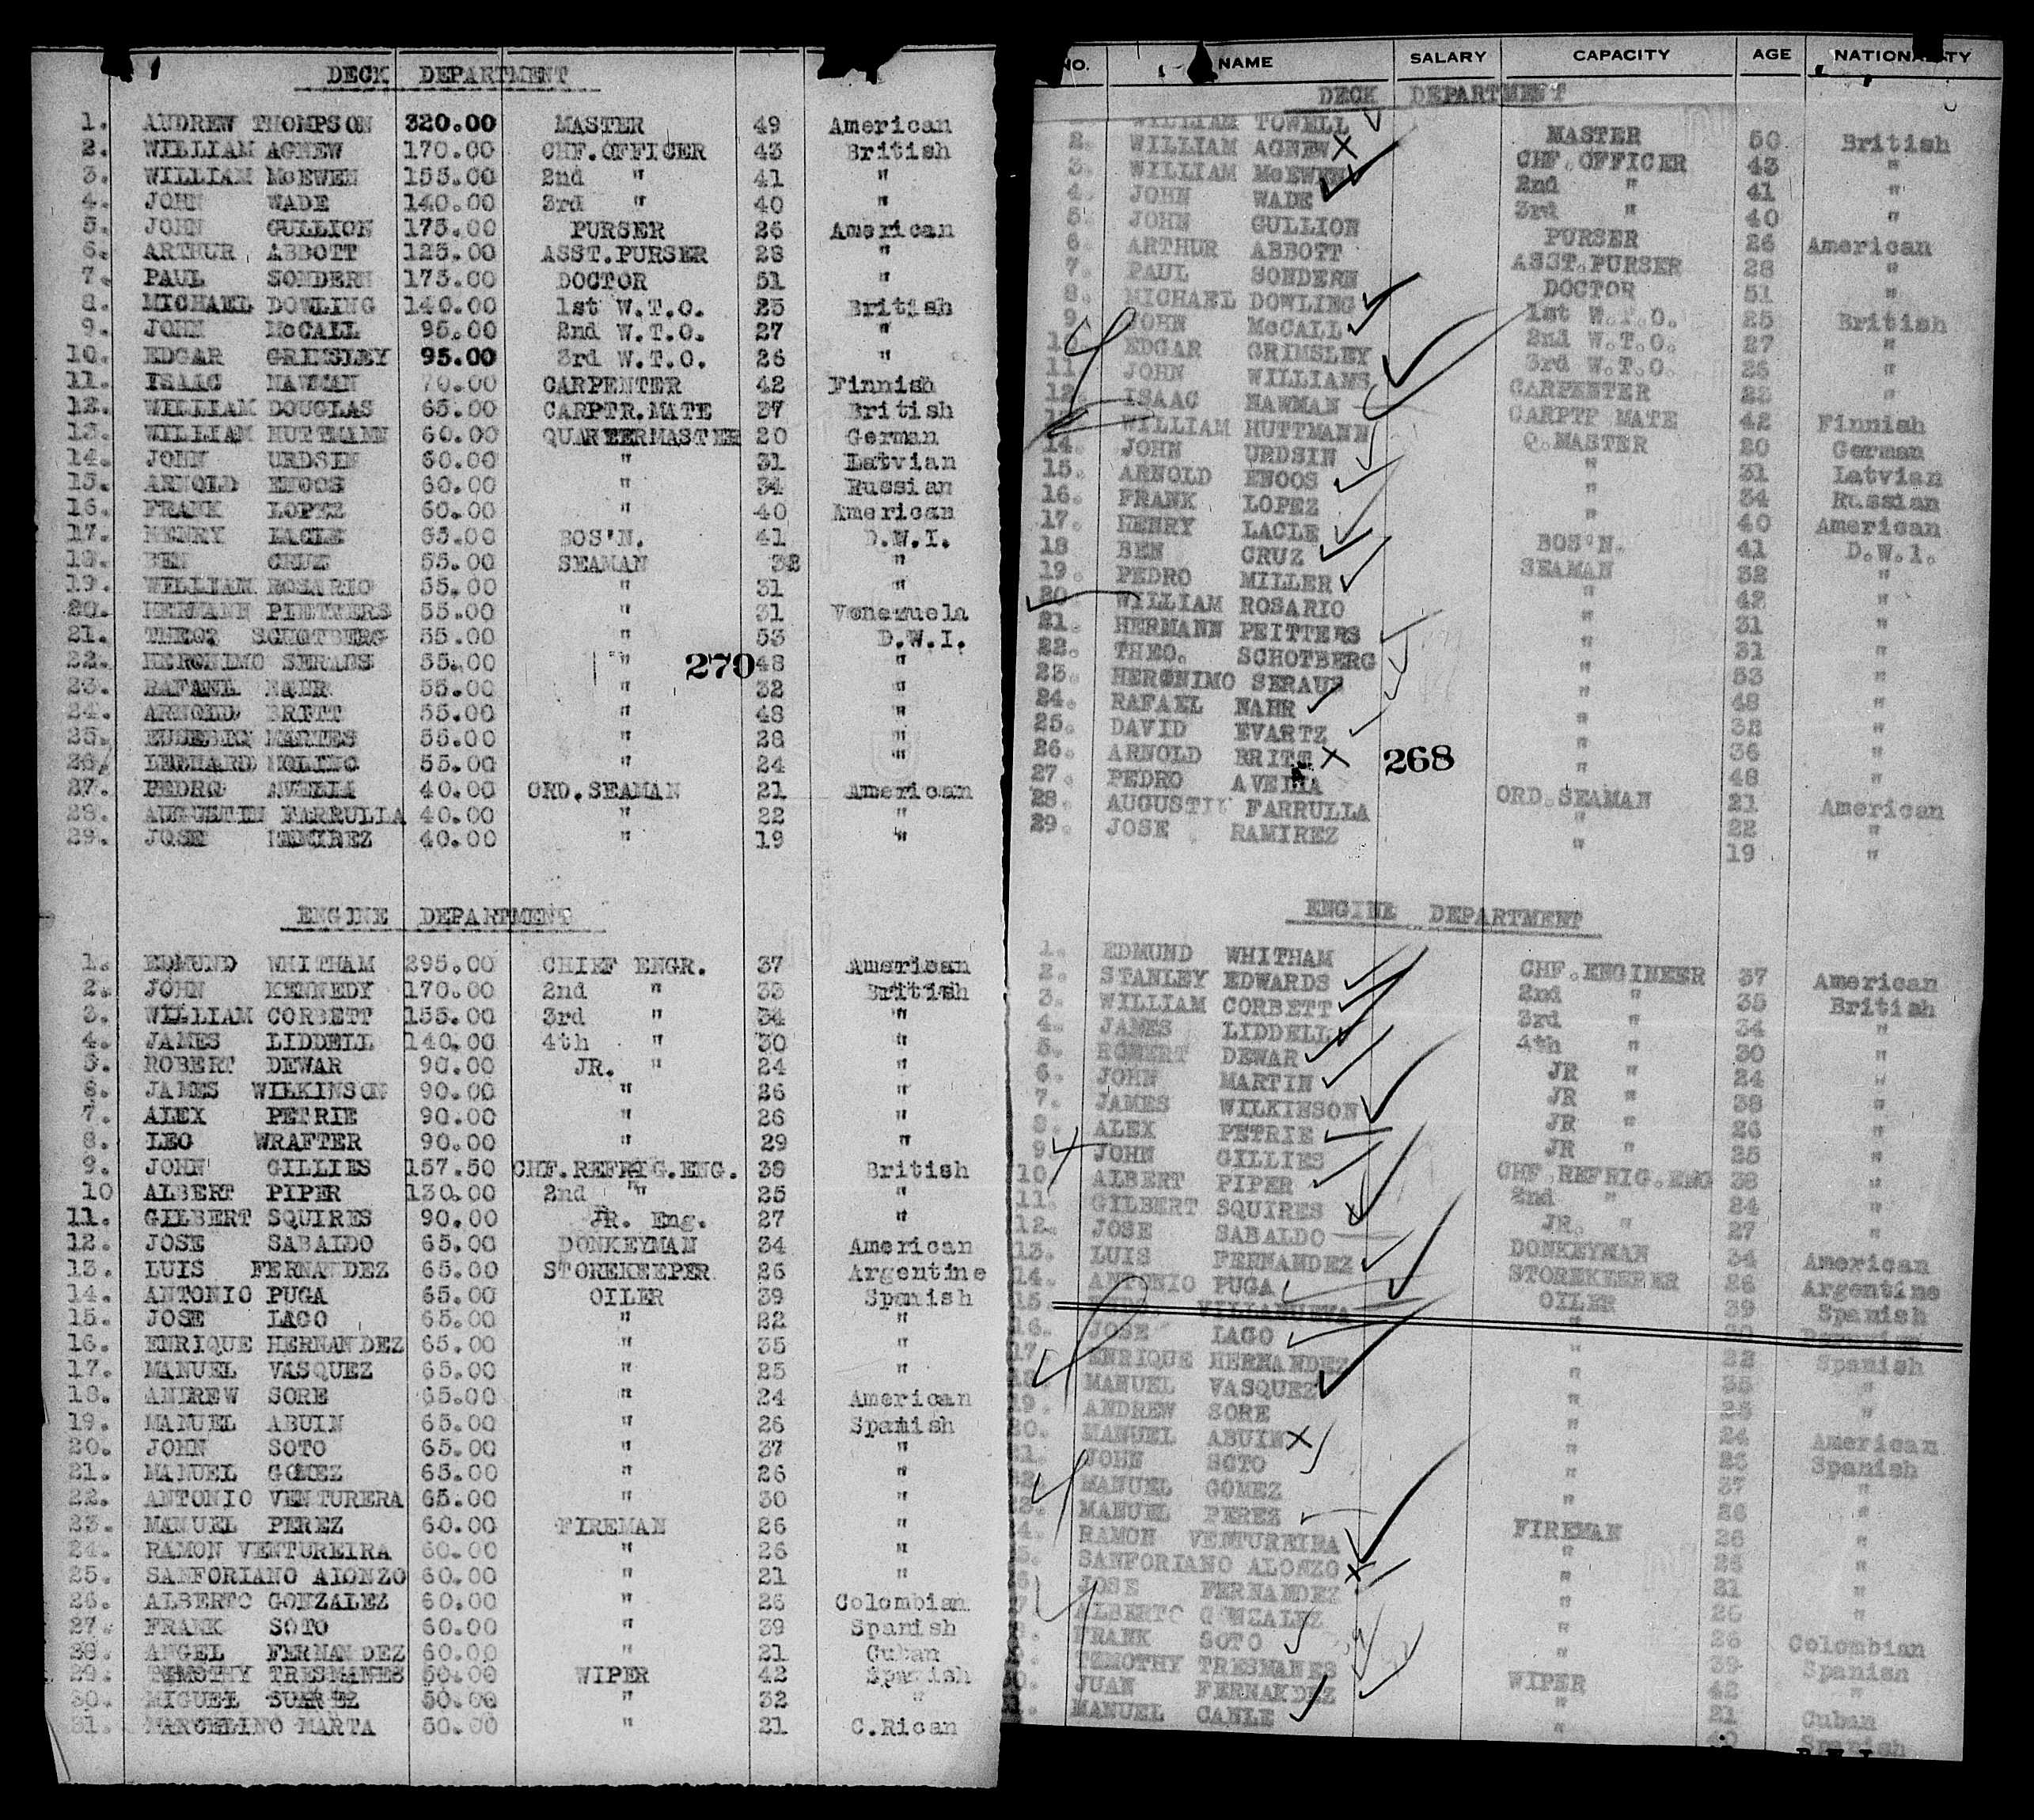 DECK DEPARTMENT
1. ANDREW THOMPSON 320.00 MASTER 49 American
2. WILLIAM AGNEW 170.00 CHF.OFFICER 43 British
3. WILLIAM McEWEN 155.00 2nd " 41 "
4. JOHN WADE 140.00 3rd " 40 "
5. JOHN GULLION 175.00 PURSER 26 American
6. ARTHUR ABBOTT 125.00 ASST.PURSER 28 "
7. PAUL SONDERN 175.00 DOCTOR 51 "
8. MICHAEL DOWLING 140.00 1st W.T.O. 25 British
9. JOHN McCALL 95.00 2nd W.T.O. 27 "
10. EDGAR GRIMSLEY 95.00 3rd W.T.O. 26 "
11. ISAAC NAWMAN 70.00 CARPENTER 42 Finnish
12. WILLIAM DOUGLAS 65.00 CARPTR.MATE 37 British
13. WILLIAM HUTTMANN 60.00 QUARTERMASTER 20 German
14. JOHN URDSIN 60.00 " 31 Latvian
15. ARNOLD ENGOS 60.00 " 34 Russian
16. FRANK LOPEZ 60.00 " 40 American
17. HENRY LACLE 65.00 BOS'N. 41 D.W.I.
18. BEN CRUZ 55.00 SEAMAN 32 "
19. WILLIAM ROSARIO 55.00 " 31 "
20. HERMANN PIETTERS 55.00 " 31 Venezuela
21. THEO. SCHOTBERG 55.00 " 53 D.W.I.
22. HERONIMO SERAUS 55.00 " 48 "
270
23. RAFAEL NAHR 55.00 " 32 "
24. ARNOLD BRITT 55.00 " 48 "
25. MARTES 55.00 " 28 "
26. MOLINO 55.00 " 24 "
27. PEDRO AVELIA 40.00 ORD.SEAMAN 21 American
28. AUGUSTIN FARRULLA 40.00 " 22 "
29. JOSE REMIREZ 40.00 " 19 "
ENGINE DEPARTMENT
1. EDMUND WHITHAM 295.00 CHIEF ENGR. 37 American
2. JOHN KENNEDY 170.00 2nd " 33 British
3. WILLIAM CORBETT 155.00 3rd " 34 "
4. JAMES LIDDELL 140.00 4th " 30 "
5. ROBERT DEWAR 90.00 JR. " 24 "
6. JAMES WILKINSON 90.00 " 26 "
7. ALEX PETRIE 90.00 " 26 "
8. LEO WRAFTER 90.00 " 29 "
9. JOHN GILLIES 157.50 CHF.REFRIG.ENG. 38 British
10 ALBERT PIPER 130.00 2nd " 25 "
11. GILBERT SQUIRES 90.00 JR. Eng. 27 "
12. JOSE SABAIDO 65.00 DONKEYMAN 34 American
13. LUIS FERNANDEZ 65.00 STOREKEEPER 26 Argentine
14. ANTONIO PUGA 65.00 OILER 39 Spanish
15. JOSE LAGO 65.00 " 22 "
16. ENRIQUE HERNANDEZ 65.00 " 35 "
17. MANUEL VASQUEZ 65.00 " 25 "
18. ANDREW SORE 65.00 " 24 American
19. MANUEL ABUIN 65.00 " 26 Spanish
20. JOHN SOTO 65.00 " 37 "
21. MANUEL GOMEZ 65.00 " 26 "
22. ANTONIO VENTURERA 65.00 " 30 "
23. MANUEL PEREZ 60.00 FIREMAN 26 "
24. RAMON VENTUREIRA 60.00 " 26 "
25. SANFORIANO AIONZO 60.00 " 21 "
26. ALBERTO GONZALEZ 60.00 " 26 Colombian
27. FRANK SOTO 60.00 " 39 Spanish
28. ANGEL FERNANDEZ 60.00 " 21 Cuban
29. TEMOTHY TRESMANES 50.00 WIPER 42 Spanish
30. MIGUEL SUAREZ 50.00 " 32 "
31. MARCELINO MARTA 50.00 " 21 C.Rican
NO. NAME SALARY CAPACITY AGE NATIONALITY
DECK DEPARTMENT
WILLIAM TOWELL MASTER 50 British
2. WILLIAM AGNEW CHF.OFFICER 43 "
3. WILLIAM McEWEN 2nd " 41 "
4. JOHN WADE 3rd " 40 "
5. JOHN GULLION PURSER 26 American
6. ARTHUR ABBOTT ASST.PURSER 28 "
7. PAUL SONDERN DOCTOR 51 "
8. MICHAEL DOWLING 1st W.T.O. 25 British
9. JOHN McCALL 2nd W.T.O. 27 "
10. EDGAR GRIMSLEY 3rd W.T.O. 26 "
11. JOHN WILLIAMS CARPENTER 23 "
12. ISAAC NAWMAN CARPTR MATE 42 Finnish
13. WILLIAM HUTTMANN Q.MASTER 20 German
14. JOHN URDSIN " 31 Latvian
15. ARNOLD ENOOS " 34 Russian
16. FRANK LOPEZ " 40 American
17. HENRY LACLE BOS'N. 41 D.W.I.
18 BEN CRUZ SEAMAN 32 "
19. PEDRO MILLER " 42 "
20. WILLIAM ROSARIO " 31 "
21. HERMANN PEITTERS " 31 "
22. THEO. SCHOTBERG " 53 "
23. HERONIMO SERAUS " 48 "
24. RAFAEL NAHR " 32 "
25. DAVID EVARTZ " 36 "
26. ARNOLD BRITT " 48 "
268
27. PEDRO AVELIA ORD.SEAMAN 21 American
28. AUGUSTIN FARRULLA " 22 "
29. JOSE RAMIREZ " 19 "
ENGINE DEPARTMENT
1. EDMUND WHITHAM CHF.ENGINEER 37 American
2. STANLEY EDWARDS 2nd " 35 British
3. WILLIAM CORBETT 3rd " 34 "
4. JAMES LIDDELL 4th " 30 "
5. ROBERT DEWAR JR " 24 "
6. JOHN MARTIN JR " 38 "
7. JAMES WILKINSON JR " 26 "
8. ALEX PETRIE JR " 25 "
9. JOHN GILLIES CHF.REFRIG.ENG 38 "
10. ALBERT PIPER 2nd " 24 "
11. GILBERT SQUIRES JR. " 27 "
12. JOSE SABALDO DONKEYMAN 34 American
13. LUIS FERNANDEZ STOREKEEPER 26 Argentine
14. ANTONIO PUGA OILER 39 Spanish
15. VILIANUEVA "
16. JOSE IAGO " 22 Spanish
17. ENRIQUE HERNANDEZ " 35 "
18. MANUEL VASQUEZ " 25 "
19. ANDREW SORE " 24 American
20. MANUEL ABUIN " 26 Spanish
21. JOHN SOTO " 37 "
22. MANUEL GOMEZ " 26 "
23. MANUEL PEREZ FIREMAN 26 "
4. RAMON VENTUREIRA " 26 "
5. SANFORIANO ALONZO " 21 "
6. JOSE FERNANDEZ " 26 "
7. ALBERTO GONZALEZ " 26 Colombian
FRANK SOTO " 39 Spanish
TEMOTHY TRESMANES WIPER 42 "
0. JUAN FERNANDEZ " 21 Cuban
MANUEL CANLE " 40 Spanish